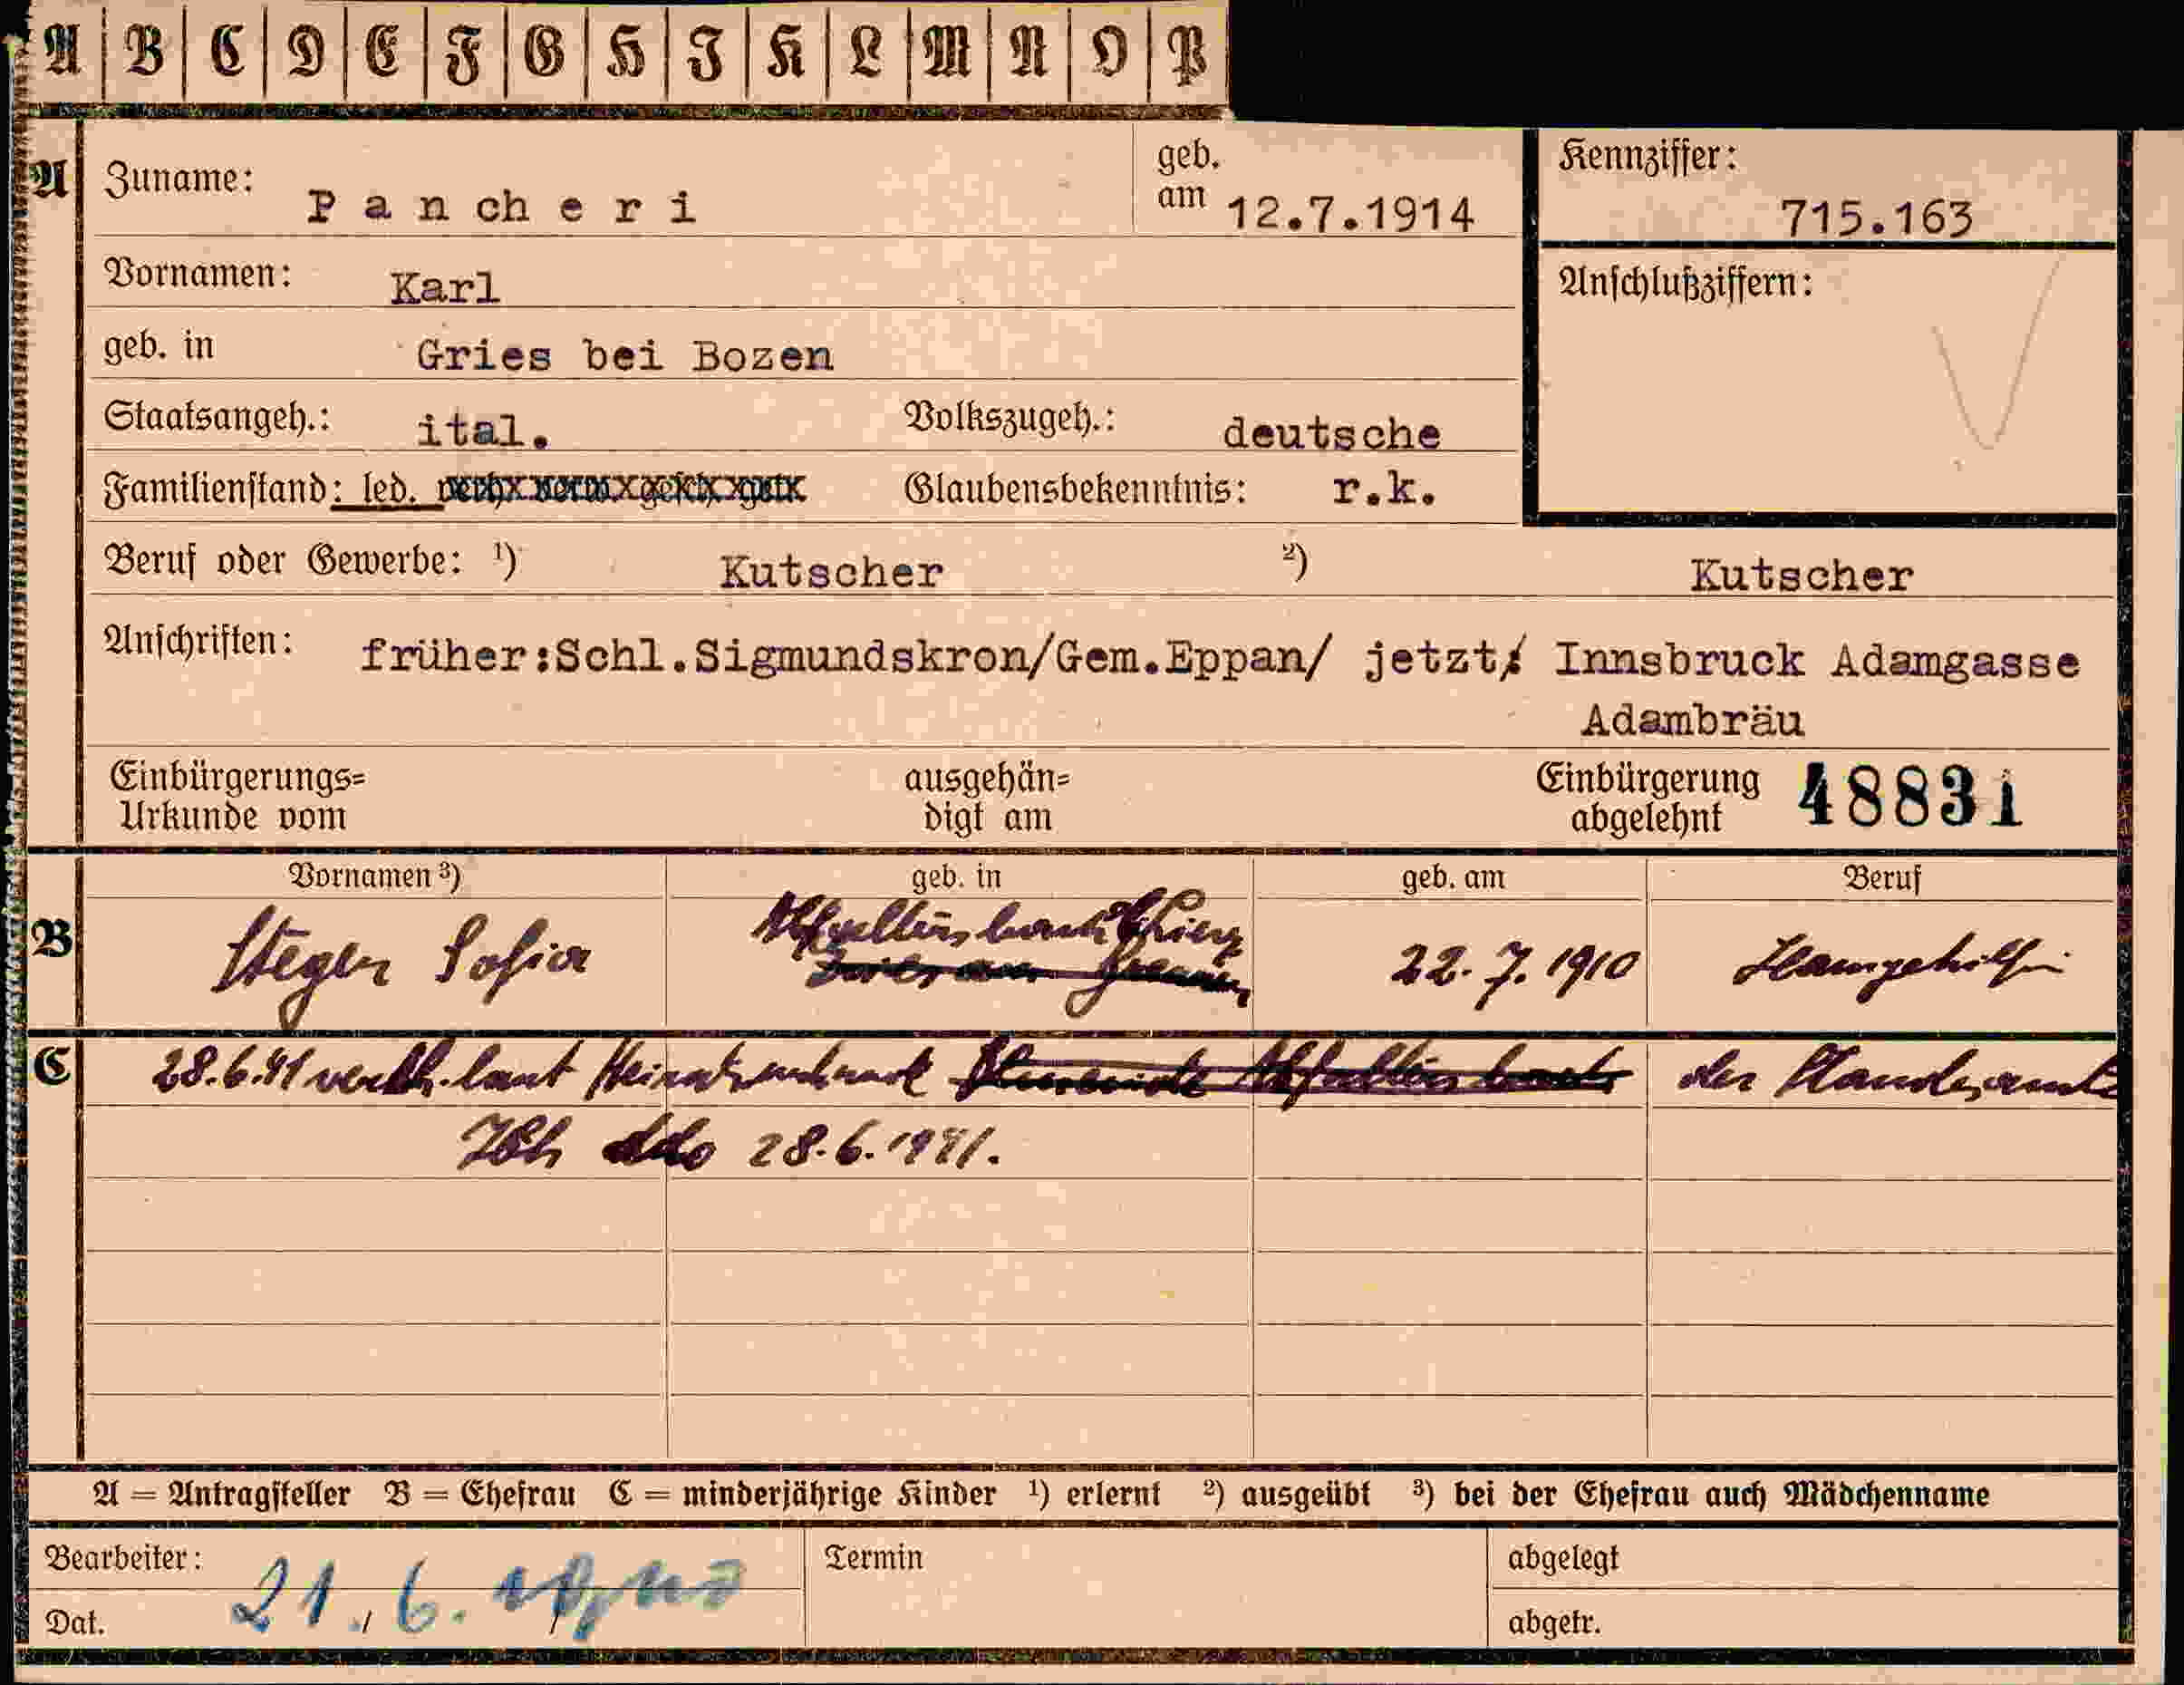 A B C D E F G H I K L M N O P
A Zuname: Pancheri geb. am 12.7.1914 Kennziffer: 715.163
Vornamen: Karl Anschlußziffern:
geb. in Gries bei Bozen
Staatsangeh.: ital. Volkszugeh.: deutsche
Familienstand: led. verh. verw. gesch. getr. Glaubensbekenntnis: r.k.
Beruf oder Gewerbe: ¹) Kutscher ²) Kutscher
Anschriften: früher:Schl.Sigmundskron/Gem.Eppan/ jetzt: Innsbruck Adamgasse
Adambräu
Einbürgerungs= ausgehän= Einbürgerung 48831
Urkunde vom digt am abgelehnt
Vornamen ³) geb. in geb. am Beruf
B Steger Sofia 22.7.1910 Hausgehilfin
C 28.6.41 verehl. laut Heiratsurkunde des Standesamts
28.6.1941.
A = Antragsteller B = Ehefrau C = minderjährige Kinder ¹) erlernt ²) ausgeübt ³) bei der Ehefrau auch Mädchenname
Bearbeiter: Termin abgelegt
Dat. 21./6. abgetr.